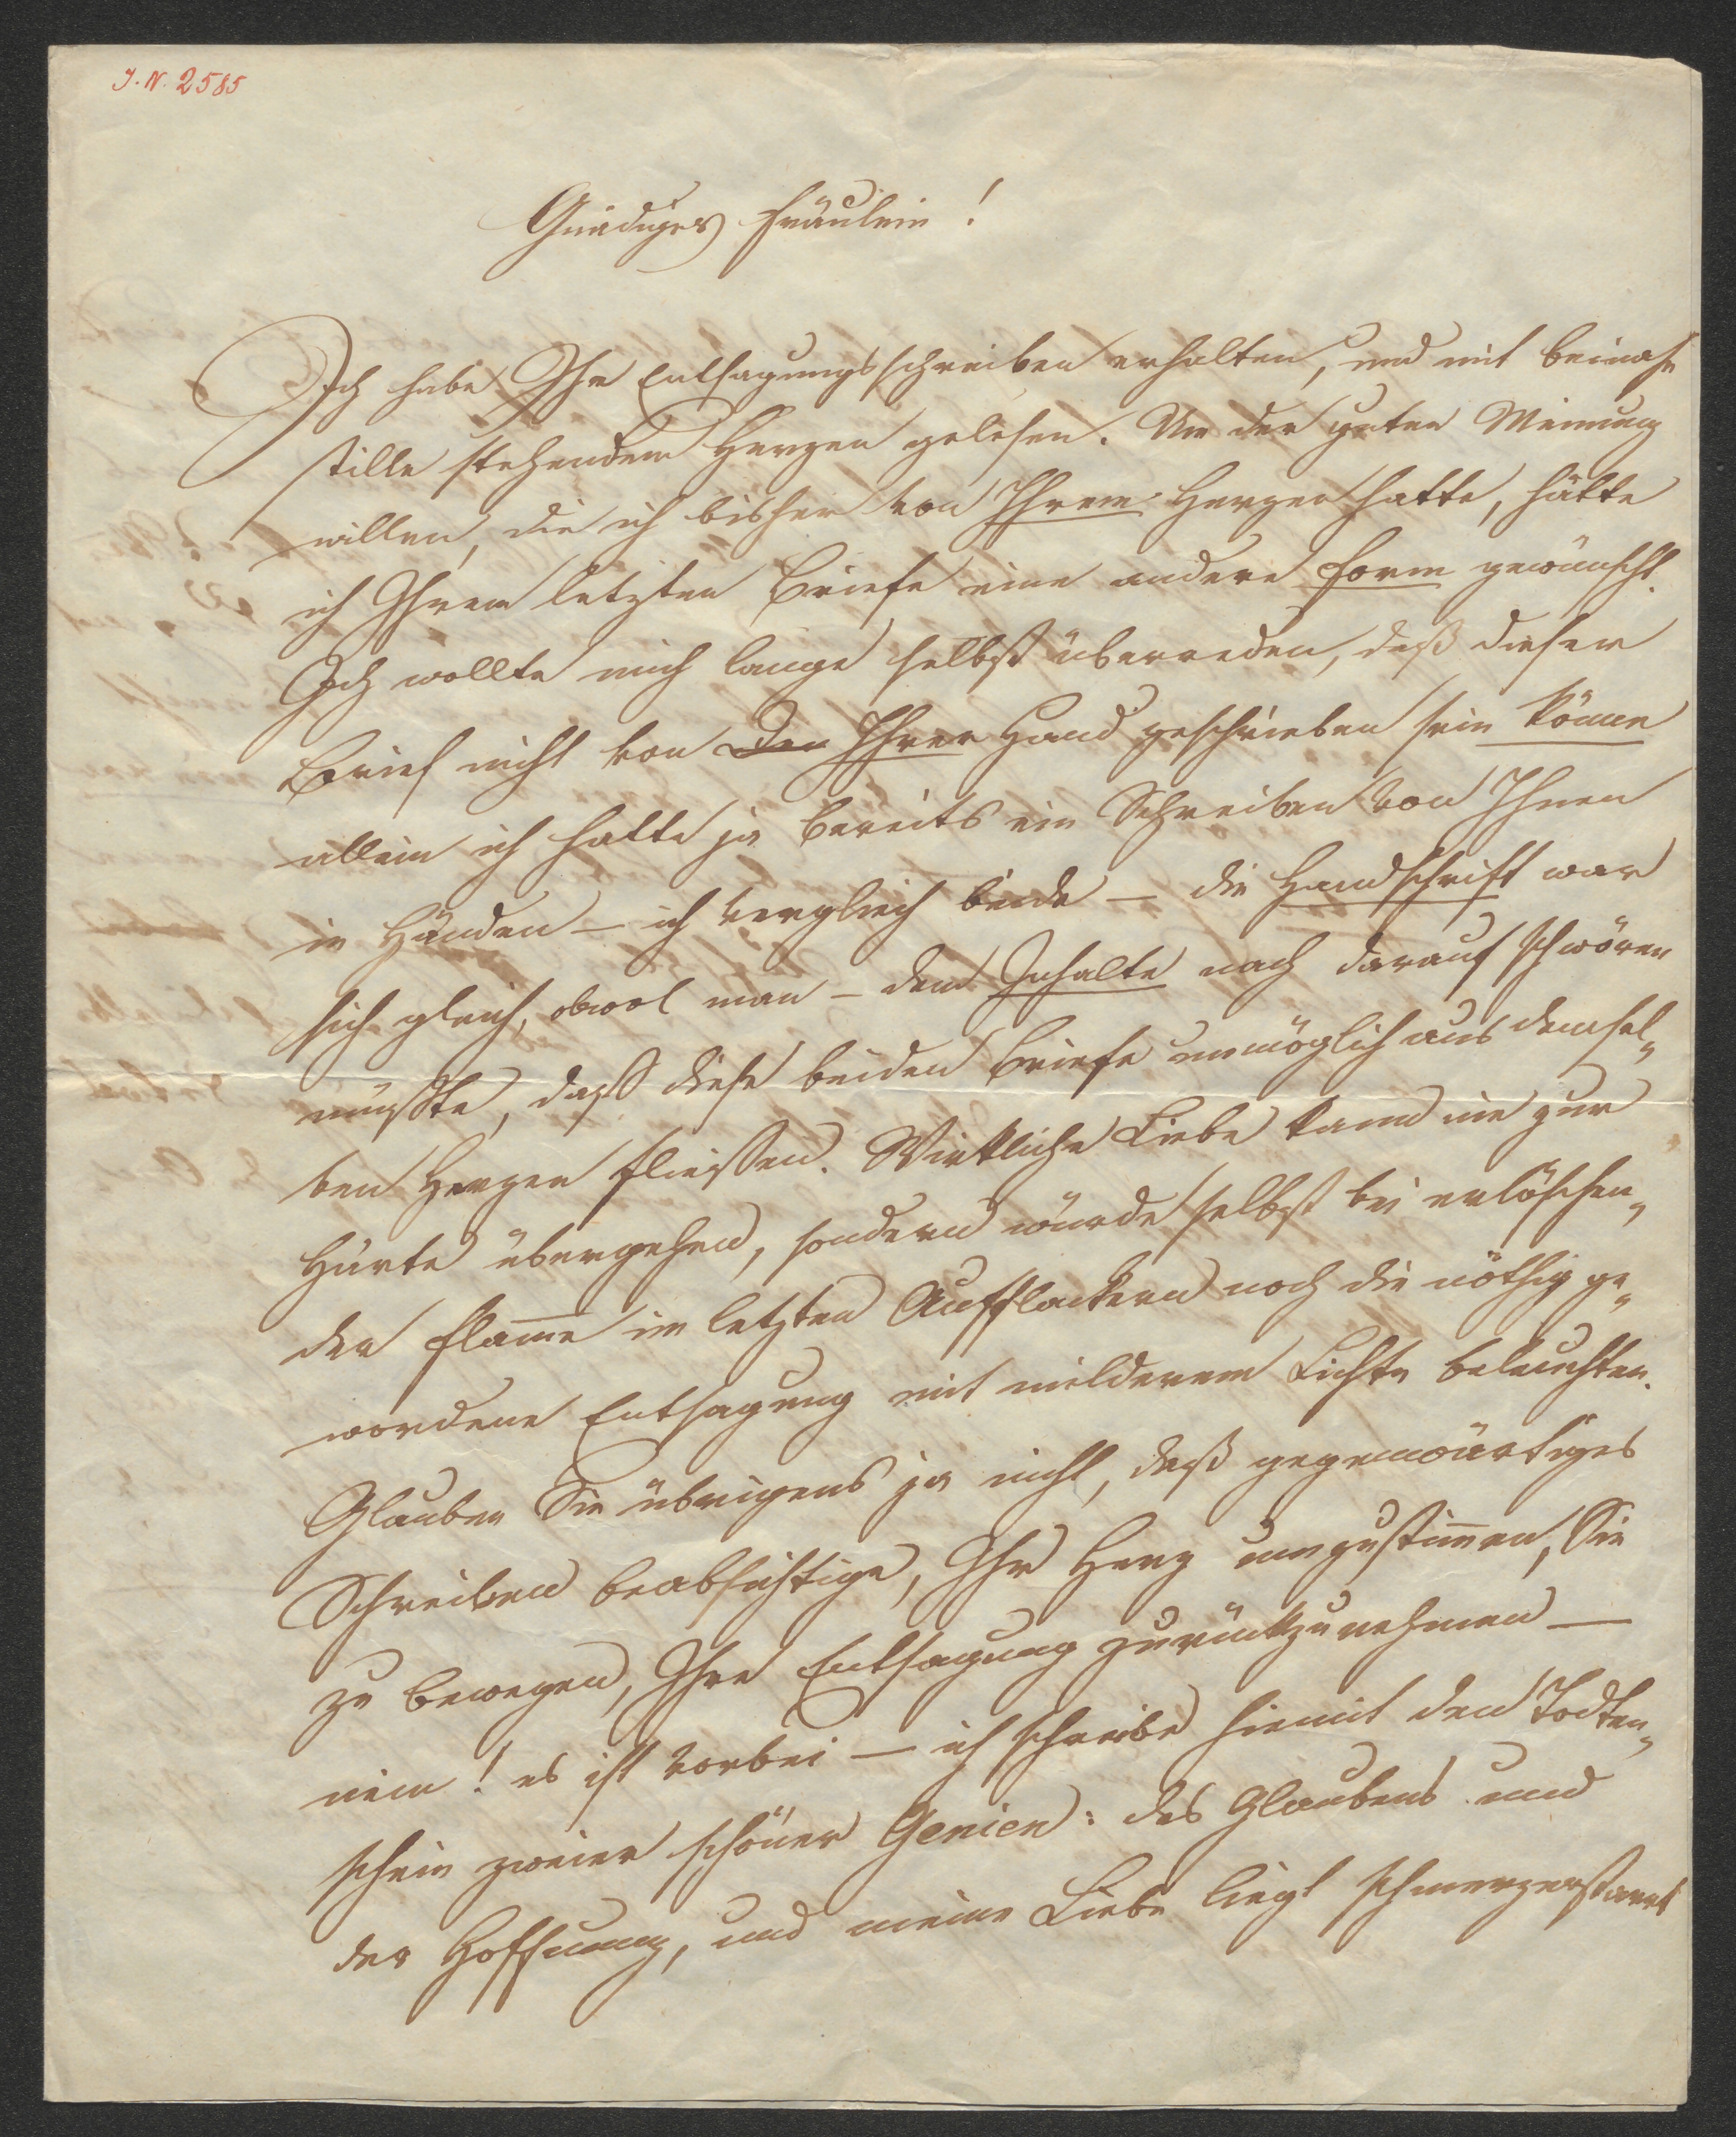 J. N. 2585
Gnädiges Fräulein!
Ich habe Ihr Entsagungsschreiben erhalten, und mit beinahe
stille stehendem Herzen gelesen. Um der guten Meinung
willen, die ich bisher von Ihrem Herzen hatte, hätte
ich Ihrem letzten Briefe eine andere Form gewünscht.
Ich wollte mich lange selbst überreden, daß dieser
Brief nicht von Den Ihrer Hand geschrieben sein könne
allein ich hatte ja bereits ein Schreiben von Ihnen
in Händen – ich verglich beide – die Handschrift war
sich gleich, obwol man – dem Inhalte nach darauf schwören
müßte, daß diese beiden Briefe unmöglich aus demsel„
ben Herzen fließen. Wirkliche Liebe kann nie zur
Härte übergehen, sondern würde selbst bei erlöschen„
der Flam̅e im letzten Aufflackern noch die nöthig ge„
wordene Entsagung mit milderem Lichte beleuchten.
Glauben Sie übrigens ja nicht, daß gegenwärtiges
Schreiben beabsichtige, Ihr Herz umzustim̅en, Sie
zu bewegen, Ihre Entsagung zurückzunehmen –
nein! es ist vorbei – ich schreibe hiemit den Todten„
schein zweier schöner Genien: des Glaubens und
der Hoffnung, und meine Liebe liegt schmerzerstarrt